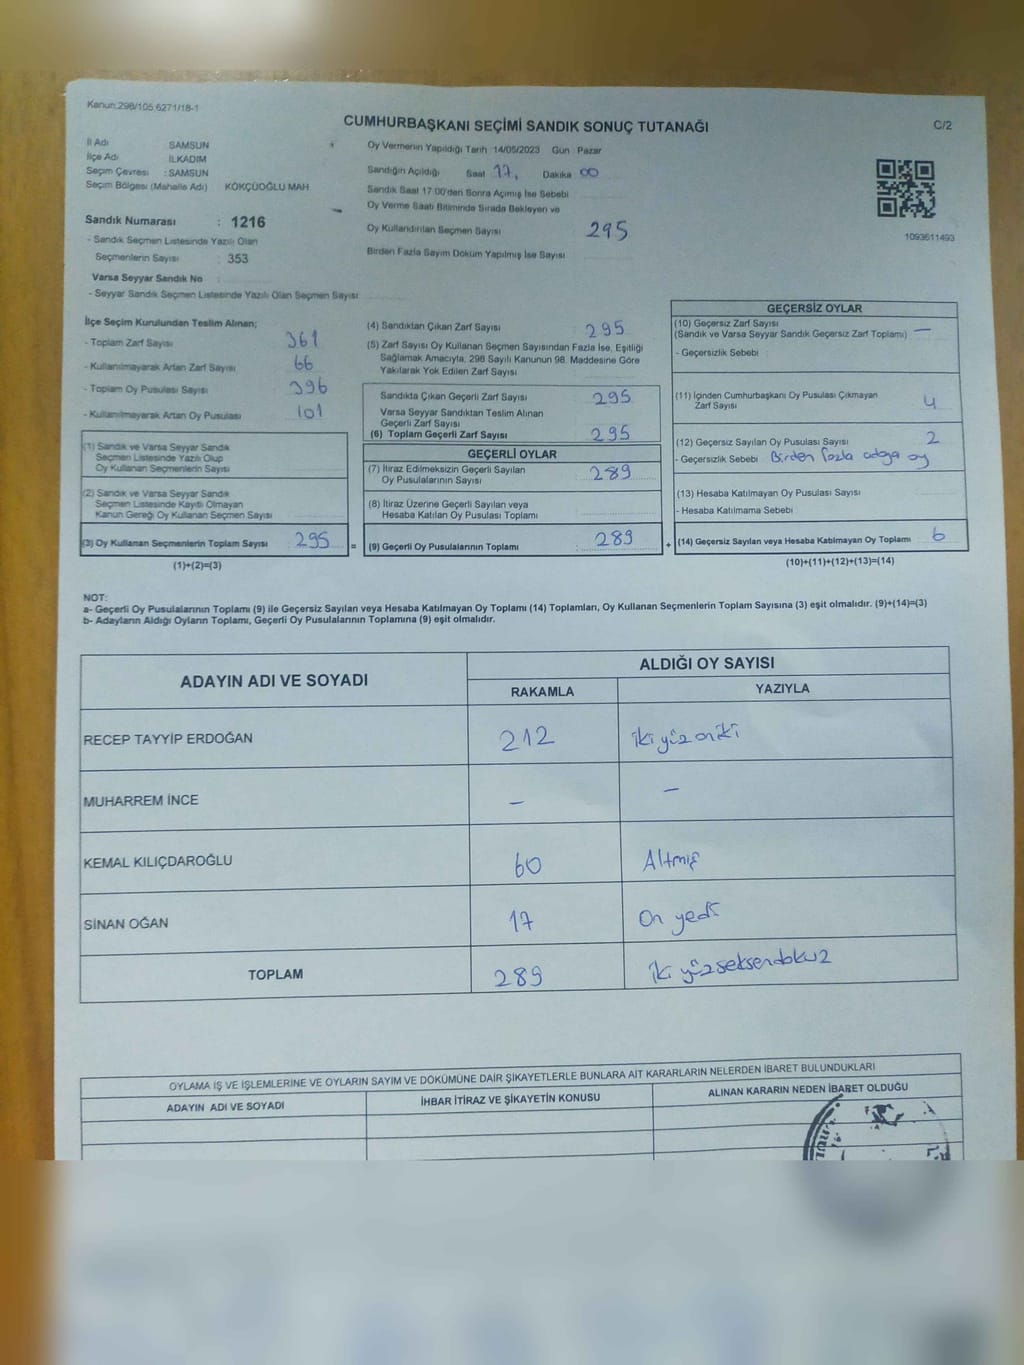 Kanun:298/105 6271/18-1
CUMHURBAŞKANI SEÇİMİ SANDIK SONUÇ TUTANAĞI
C/2
İl Adı SAMSUN
İlçe Adı İLKADIM
Seçim Çevresi : SAMSUN
Seçim Bölgesi (Mahalle Adı) KÖKÇÜOĞLU MAH
Sandık Numarası : 1216
- Sandık Seçmen Listesinde Yazılı Olan
Seçmenlerin Sayısı : 353
Varsa Seyyar Sandık No :
- Seyyar Sandık Seçmen Listesinde Yazılı Olan Seçmen Sayısı
Oy Vermenin Yapıldığı Tarih 14/05/2023 Gün : Pazar
Sandığın Açıldığı Saat 17, Dakika 00
Sandık Saat 17:00'den Sonra Açılmış İse Sebebi
Oy Verme Saati Bitiminde Sırada Bekleyen ve
Oy Kullandırılan Seçmen Sayısı 295
Birden Fazla Sayım Döküm Yapılmış İse Sayısı
1093611493
İlçe Seçim Kurulundan Teslim Alınan;
- Toplam Zarf Sayısı 361
- Kullanılmayarak Artan Zarf Sayısı 66
- Toplam Oy Pusulası Sayısı 396
- Kullanılmayarak Artan Oy Pusulası 101
(1) Sandık ve Varsa Seyyar Sandık
Seçmen Listesinde Yazılı Olup
Oy Kullanan Seçmenlerin Sayısı
(2) Sandık ve Varsa Seyyar Sandık
Seçmen Listesinde Kayıtlı Olmayan
Kanun Gereği Oy Kullanan Seçmen Sayısı
(3) Oy Kullanan Seçmenlerin Toplam Sayısı 295 =
(1)+(2)=(3)
(4) Sandıktan Çıkan Zarf Sayısı 295
(5) Zarf Sayısı Oy Kullanan Seçmen Sayısından Fazla İse, Eşitliği
Sağlamak Amacıyla, 298 Sayılı Kanunun 98. Maddesine Göre
Yakılarak Yok Edilen Zarf Sayısı
Sandıkta Çıkan Geçerli Zarf Sayısı 295
Varsa Seyyar Sandıktan Teslim Alınan
Geçerli Zarf Sayısı
(6) Toplam Geçerli Zarf Sayısı 295
GEÇERLİ OYLAR
(7) İtiraz Edilmeksizin Geçerli Sayılan
Oy Pusulalarının Sayısı 289
(8) İtiraz Üzerine Geçerli Sayılan veya
Hesaba Katılan Oy Pusulası Toplamı
(9) Geçerli Oy Pusulalarının Toplamı 289 +
GEÇERSİZ OYLAR
(10) Geçersiz Zarf Sayısı
(Sandık ve Varsa Seyyar Sandık Geçersiz Zarf Toplamı) —
- Geçersizlik Sebebi :
(11) İçinden Cumhurbaşkanı Oy Pusulası Çıkmayan
Zarf Sayısı 4
(12) Geçersiz Sayılan Oy Pusulası Sayısı 2
- Geçersizlik Sebebi Birden fazla adaya oy
(13) Hesaba Katılmayan Oy Pusulası Sayısı
- Hesaba Katılmama Sebebi
(14) Geçersiz Sayılan veya Hesaba Katılmayan Oy Toplamı 6
(10)+(11)+(12)+(13)=(14)
NOT:
a- Geçerli Oy Pusulalarının Toplamı (9) ile Geçersiz Sayılan veya Hesaba Katılmayan Oy Toplamı (14) Toplamları, Oy Kullanan Seçmenlerin Toplam Sayısına (3) eşit olmalıdır. (9)+(14)=(3)
b- Adayların Aldığı Oyların Toplamı, Geçerli Oy Pusulalarının Toplamına (9) eşit olmalıdır.
ADAYIN ADI VE SOYADI
ALDIĞI OY SAYISI
RAKAMLA YAZIYLA
RECEP TAYYİP ERDOĞAN 212 iki yüz oniki
MUHARREM İNCE — —
KEMAL KILIÇDAROĞLU 60 Altmış
SİNAN OĞAN 17 On yedi
TOPLAM 289 iki yüz seksendokuz
OYLAMA İŞ VE İŞLEMLERİNE VE OYLARIN SAYIM VE DÖKÜMÜNE DAİR ŞİKAYETLERLE BUNLARA AİT KARARLARIN NELERDEN İBARET BULUNDUKLARI
ADAYIN ADI VE SOYADI İHBAR İTİRAZ VE ŞİKAYETİN KONUSU ALINAN KARARIN NEDEN İBARET OLDUĞU